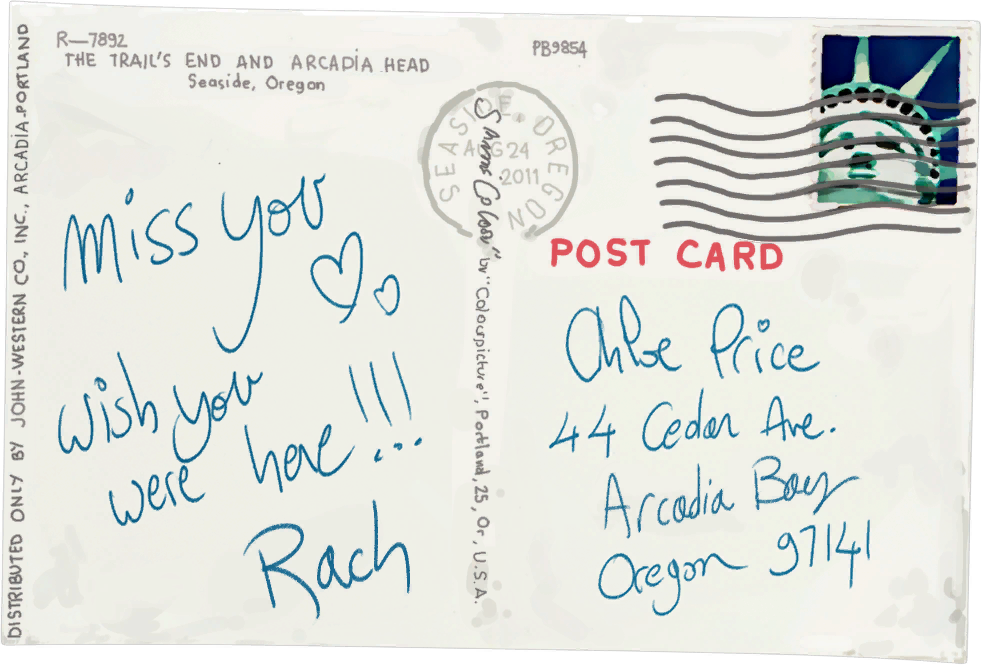 R—7892
THE TRAIL'S END AND ARCADIA HEAD
Seaside, Oregon
PB9854
SEASIDE, OREGON
AUG 24
2011
POST CARD
miss you
wish you
were here!!!
Rach
Chloe Price
44 Cedar Ave.
Arcadia Bay
Oregon 97141
DISTRIBUTED ONLY BY JOHN-WESTERN CO., INC., ARCADIA-PORTLAND
by "Colourpicture", Portland, 25, Or, U.S.A.